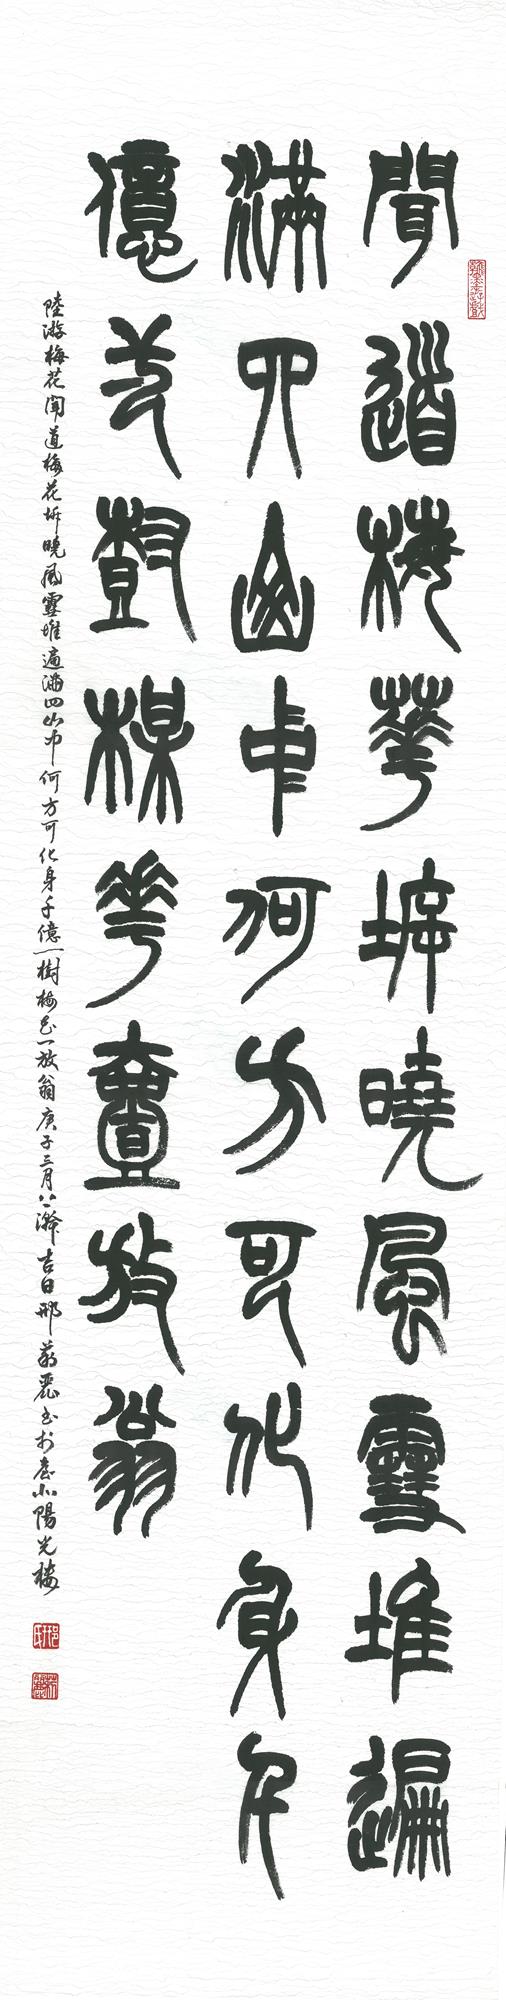 聞道梅華坼曉風雪堆遍
滿四山中何方可化身千
億一樹梅華壹放翁
陸游梅花聞道梅花坼曉風雪堆遍滿四山中何方可化身千億一樹梅花一放翁庚子三月
吉日邢